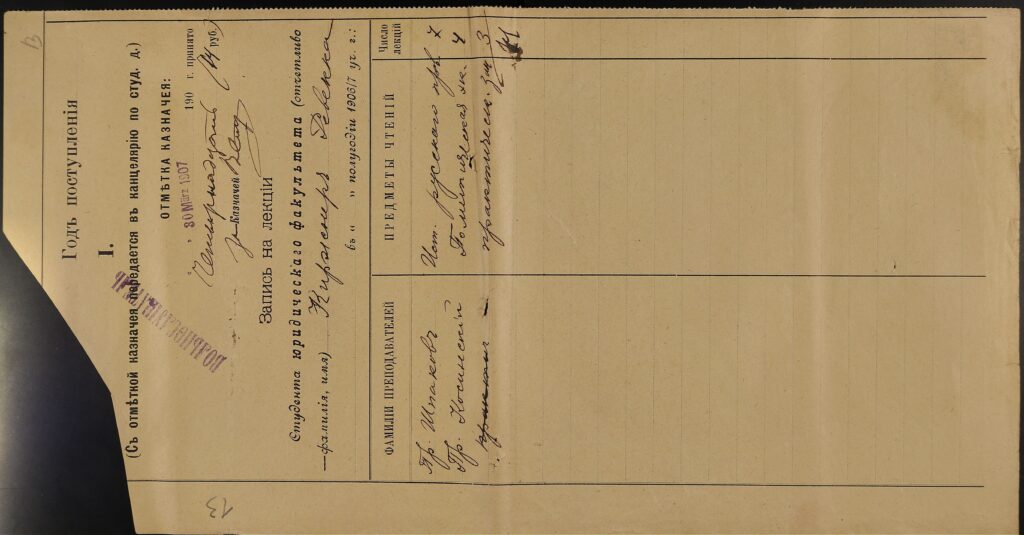 Годъ поступленія
I.
(Съ отмѣткой казначея передается въ канцелярію по студ. д.)
ВОЛЬНОСЛУШАТЕЛЬ
ОТМѢТКА КАЗНАЧЕЯ:
30 März 1907
190 г. принято
Четырнадцать (14 руб.
Казначей
Запись на лекціи
Студента юридическаго факультета (отчетливо
—фамилія, имя) Киржнеръ Ревекка
въ „ „ полугодіи 1906/7 уч. г.:
ФАМИЛІИ ПРЕПОДАВАТЕЛЕЙ
ПРЕДМЕТЫ ЧТЕНІЙ
Число лекцій
Пр. Шпаковъ Ист. русского пр. 7
Пр. Косинскій Политическая эк. 4
практич. практическ. зан. 3
14
13